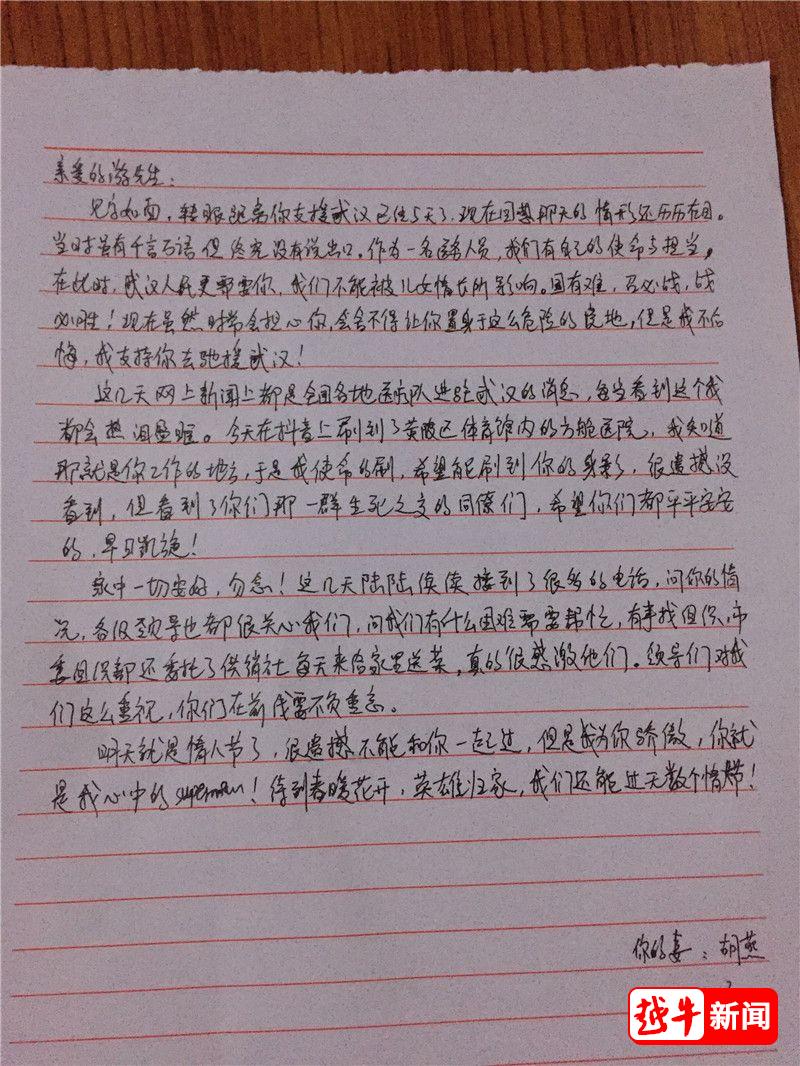 亲爱的游先生：
见字如面，转眼距离你支援武汉已经5天了，现在回想那天的情形还历历在目。
当时虽有千言万语但终究没有说出口。作为一名医务人员，我们有自己的使命与担当。
在此时，武汉人民更需要你，我们不能被儿女情长所影响。国有难，召必战，战
必胜！现在虽然时常会担心你，会舍不得让你置身于这么危险的境地，但是我不后
悔，我支持你去驰援武汉！
这几天网上新闻上都是全国各地医疗队进驻武汉的消息，每当看到这个我
都会热泪盈眶。今天在抖音上刷到了黄陂区体育馆内的方舱医院，我知道
那就是你工作的地方，于是我使命的刷，希望能刷到你的身影，很遗憾没
看到，但看到了你们那一群生死之交的同僚们，希望你们都平平安安
的，早日凯旋！
家中一切安好，勿念！这几天陆陆续续接到了很多的电话，问你的情
况，各级领导也都很关心我们，问我们有什么困难需要帮忙，有事找组织，市
委组织部还委托了供销社每天来给家里送菜，真的很感激他们。领导们对我
们这么重视，你们在前线要不负重念。
明天就是情人节了，很遗憾不能和你一起过，但是我为你骄傲，你就
是我心中的superman！待到春暖花开，英雄归家，我们还能过无数个情人节！
你的妻：胡燕
越牛新闻